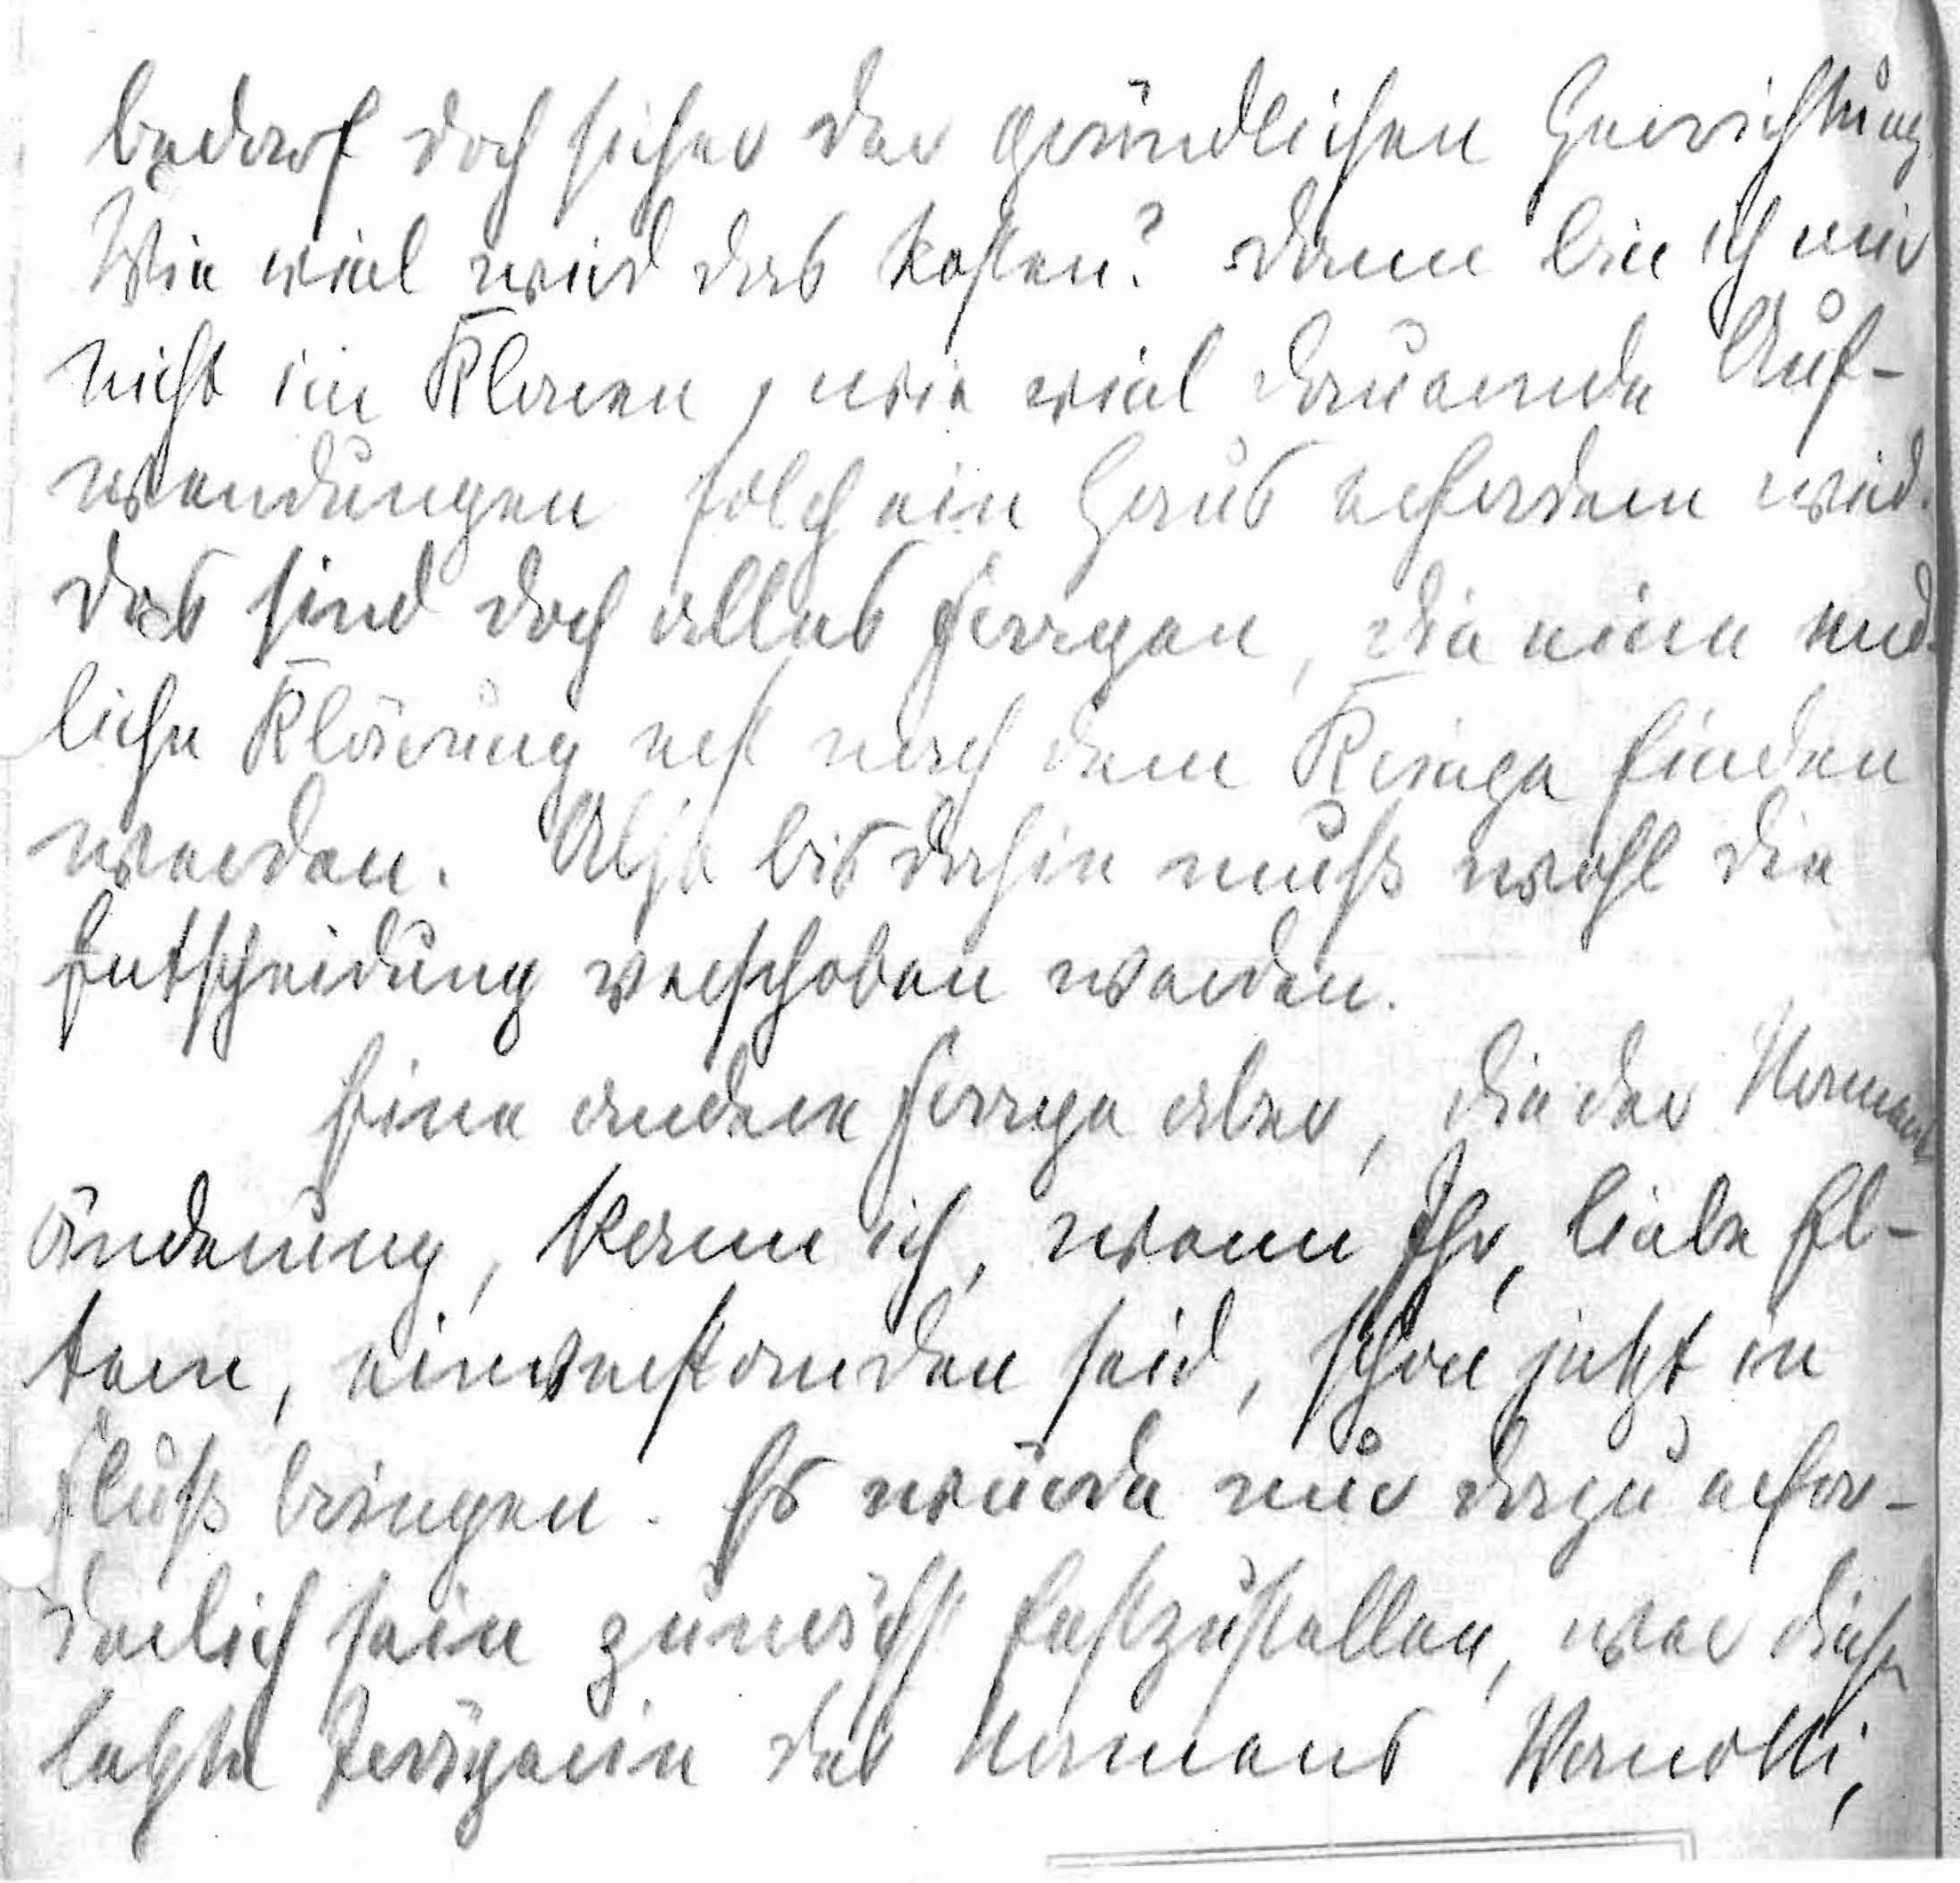 bedarf doch sicher der gründlichen Herrichtung.
Wie viel wird das kosten? Dann bin ich mir
nicht im Klaren, wie viel dauernde Auf-
wendungen solch ein Haus erfordern wird.
Das sind doch alles Fragen, die eine end-
liche Klärung erst nach dem Kriege finden
werden. Also bis dahin muß wohl die
Entscheidung verschoben werden.
Eine andere Frage aber, die der Namens
änderung, kann ich, wenn Ihr, liebe El-
tern, einverstanden seid, schon jetzt in
Fluß bringen. Es würde nur dazu erfor-
derlich sein zunächst festzustellen, wer diese
letzte Trägerin des Namens Vanotti,